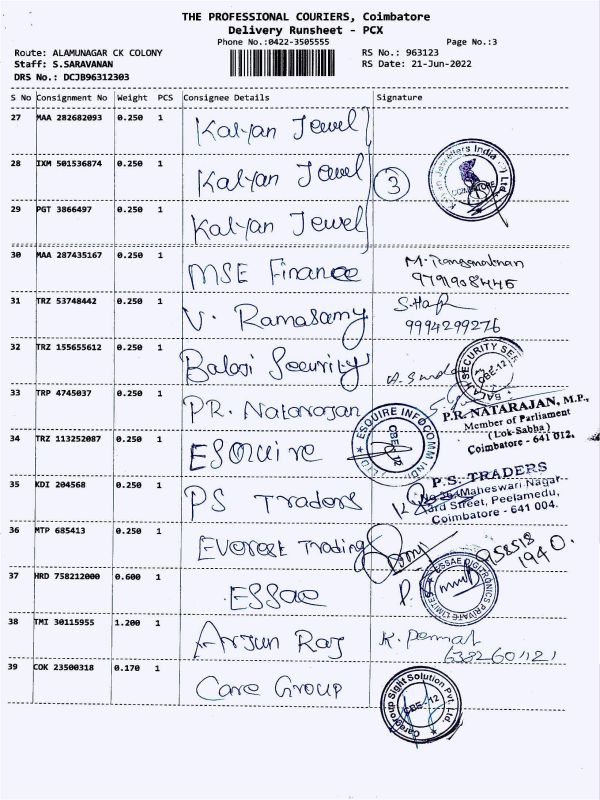 THE PROFESSIONAL COURIERS, Coimbatore
Delivery Runsheet - PCX
Phone No.:0422-3505555
Page No.:3
Route: ALAMUNAGAR CK COLONY
RS No.: 963123
Staff: S.SARAVANAN
RS Date: 21-Jun-2022
DRS No.: DCJB96312303
S No Consignment No Weight PCS Consignee Details Signature
27 MAA 282682093 0.250 1 Kalyan Jewel
28 IXM 501536874 0.250 1 Kalyan Jewel 3
Kalyan Jewellers India
COIMBATORE
29 PGT 3866497 0.250 1 Kalyan Jewel
30 MAA 287435167 0.250 1 MSE Finance
31 TRZ 53748442 0.250 1 V. Ramasamy
9994299276
32 TRZ 155655612 0.250 1 Balaji Security
BALAJI SECURITY SER
CBE-12
33 TRP 4745037 0.250 1 P.R. Natarajan
P.R. NATARAJAN, M.P.,
Member of Parliament
(Lok-Sabha)
Coimbatore - 641 012.
34 TRZ 113252087 0.250 1 Esquire
ESQUIRE INFOCOMM INDIA
CBE-12
35 KDI 204568 0.250 1 PS Traders
P.S. TRADERS
Maheswari Nagar
3rd Street, Peelamedu,
Coimbatore - 641 004.
36 MTP 685413 0.250 1 Everest Trading
37 HRD 758212000 0.600 1 ESSae
ESSAE DIGITRONICS PRIVATE LIMITED
38 TMI 30115955 1.200 1 Arjun Raj
39 COK 23500318 0.170 1 Care Group
Caregroup Sight Solution Pvt. Ltd.
CBE-12